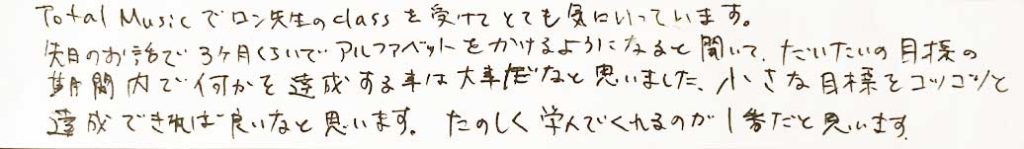 Total Music でロン先生の class を受けてとても気にいっています。
先日のお話で 3ヶ月くらいでアルファベットをかけるようになると聞いて、だいたいの目標の
期間内で何かを達成する事は大事だなと思いました、小さな目標をコツコツと
達成できれば良いなと思います。 たのしく学んでくれるのが1番だと思います